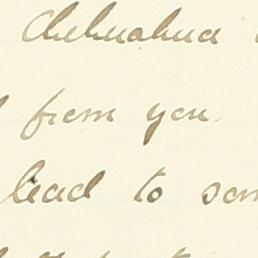 Chihuahua
from you
lead to som